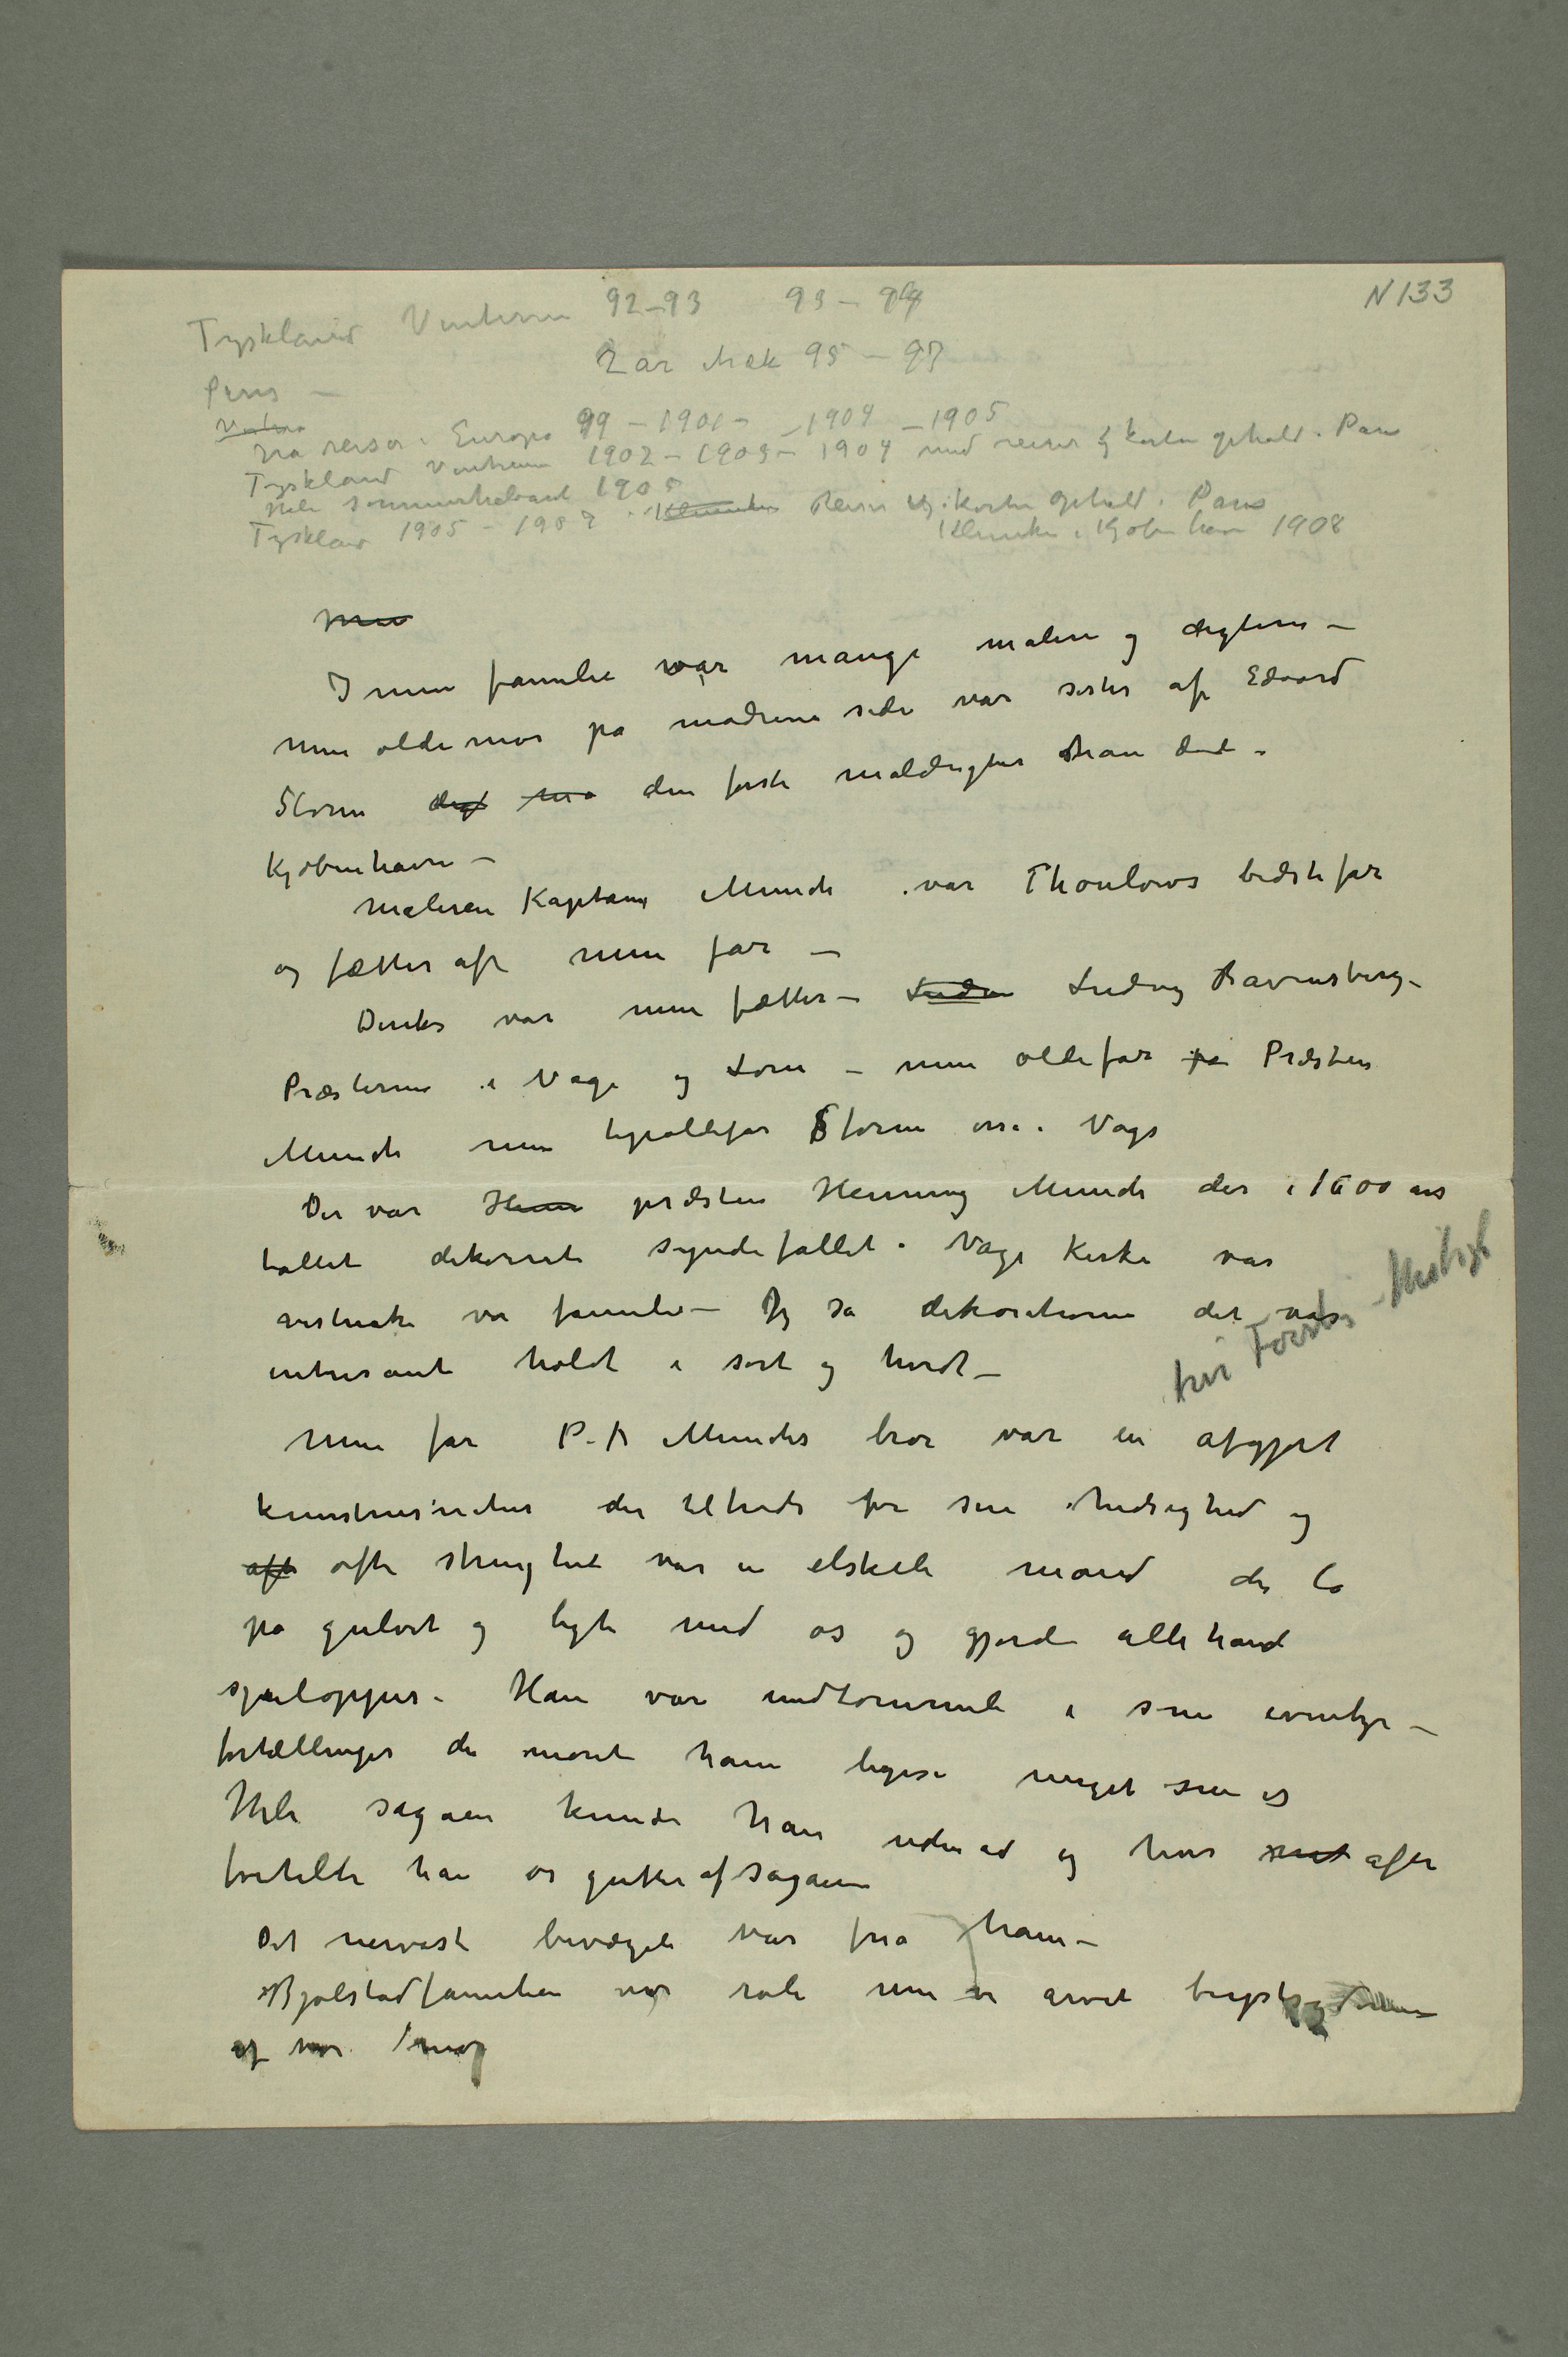 N 133
Tyskland Vinteren 92–93 93–94
Paris – 2 år træk 95–97
på reiser i Europa 99–1901– –1904–1905
Tyskland Vinteren 1902–1903–1904 med reiser og korte ophold i Paris
Hele sommerhalvaret 1905
Tyskland 1905–1907 Reiser og korte ophold i Paris
Klinike i Kjøbenhavn 1908
I min familie var mange malere og digtere –
Min oldemor på modrene side var søster af Edvard
Storm den første maldigter han døde i
Kjøbenhavn –
Maleren Kaptain Munch var Thaulows bedstefar
og fætter af min far –
Diriks var min fætter – Ludvig Ravensberg –
Præsterne i Vågå og Lom – min oldefar Præsten
Munch min tipoldefar Storm osså i Vågå
Der var præsten Henning Munch der i 1600 års
tallet dekorerte syndefallet i Vågå Kirke var
vistnok vor familie – Jeg så dekorationene det var
intresant holdt i sort og hvidt –
Min far P. A Munchs bror var en afgjort
kunstnernatur der tiltrods for sin hidsighed og
ofte strenghet var en elskelig mand der lå
på gulvet og legte med os og gjorde allehånd
spilopper. Han var uudtømmelig i sine eventyr –
fortællinger der moret ham ligeså meget som os
Hele sagaen kunde han udenad og hver aften
fortelte han os gutter af sagaen
Det nervøst bevægelige var fra ham –
Bjølstadfamilien var rolig men vi arvet brystsygdommen
af vor mor